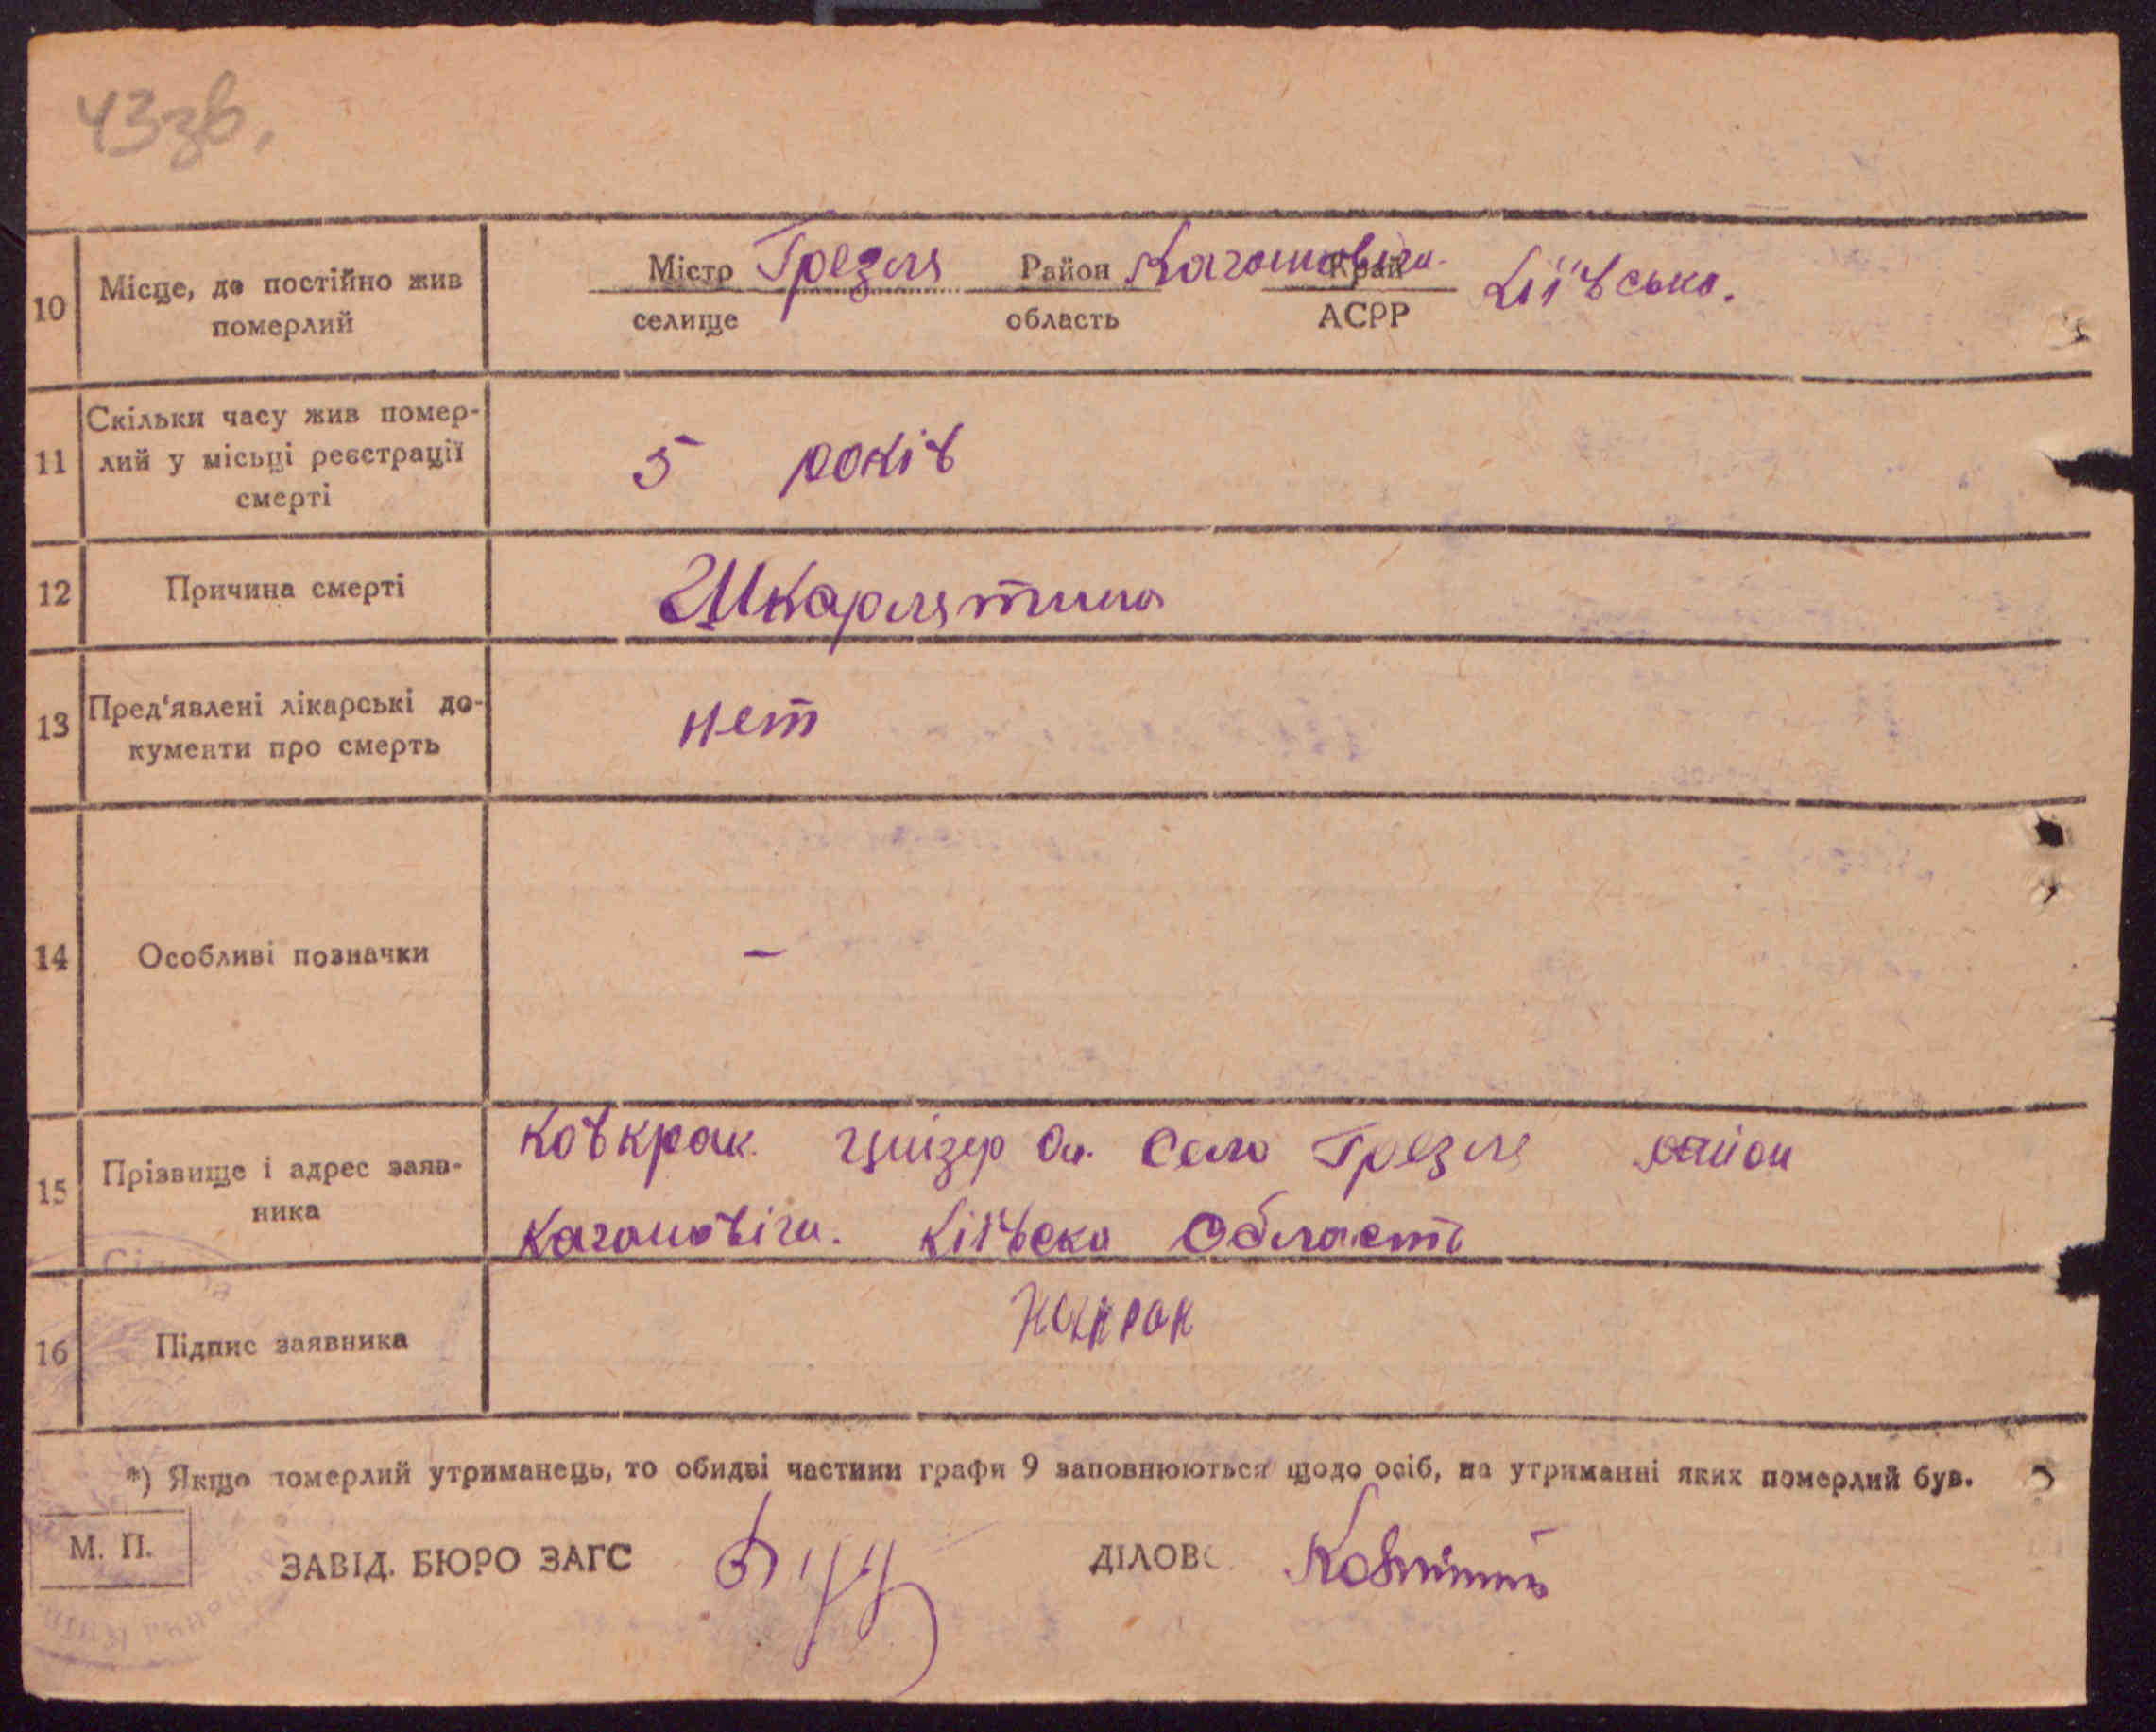 43зв.
10 Місце, де постійно жив Місто Грезля Район Каганович. Край Київсько.
померлий селище область АСРР
Скільки часу жив помер-
11 лий у місьці реєстрації 5 років
смерті
12 Причина смерті Шкарлятина
13 Пред'явлені лікарські до- нет
кументи про смерть
14 Особливі позначки –
Ковкрак. Село Грезля район
15 Прізвище і адрес заяв-
ника Кагановіч. Київско Область
16 Підпис заявника
*) Якщо померлий утриманець, то обидві частини графи 9 заповнюються щодо осіб, на утриманні яких померлий був.
М. П. ЗАВІД. БЮРО ЗАГС ДІЛОВ